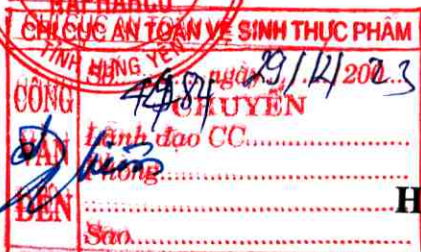 HAPHARCO
CHI CỤC AN TOÀN VỆ SINH THỰC PHẨM
TỈNH HƯNG YÊN
CÔNG VĂN ĐẾN
Số ngày 29/12/2023
CHUYỂN
Lãnh đạo CC
Phòng
H
Sao